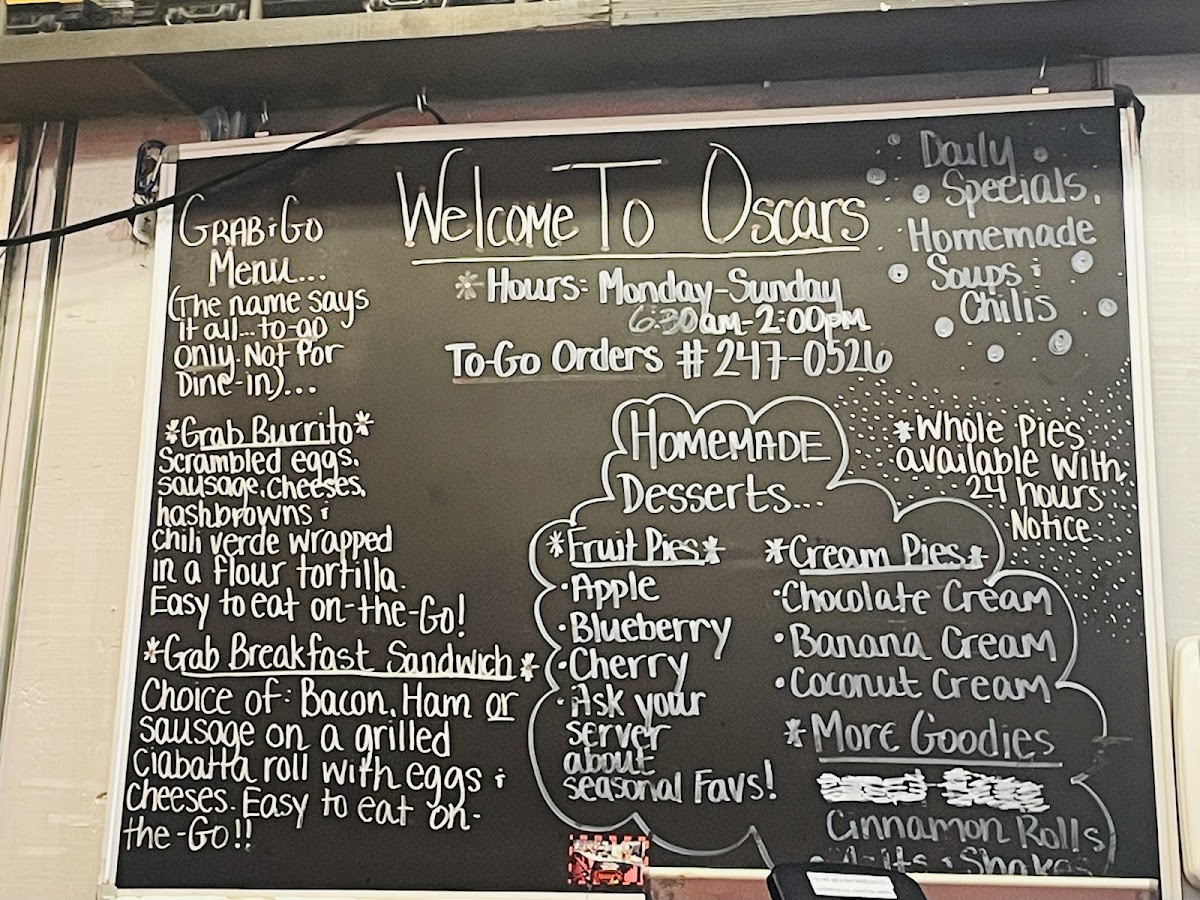 Welcome To Oscars
*Hours: Monday-Sunday
6:30am-2:00pm
To-Go Orders #247-0526
Daily
Specials,
Homemade
Soups &
Chilis
Grab & Go
Menu...
(The name says
it all...to-go
only. Not for
Dine-in)...
*Grab Burrito*
Scrambled eggs,
sausage, cheeses,
hashbrowns &
chili verde wrapped
in a flour tortilla.
Easy to eat on-the-Go!
*Grab Breakfast Sandwich*
Choice of: Bacon, Ham or
sausage on a grilled
Ciabatta roll with eggs &
cheeses. Easy to eat on-
the-Go!!
Homemade
Desserts...
*Whole Pies
available with
24 hours
Notice
*Fruit Pies*
•Apple
•Blueberry
•Cherry
•Ask your
server
about
seasonal Favs!
*Cream Pies*
•Chocolate Cream
•Banana Cream
•Coconut Cream
*More Goodies
Cinnamon Rolls
•Malts & Shakes